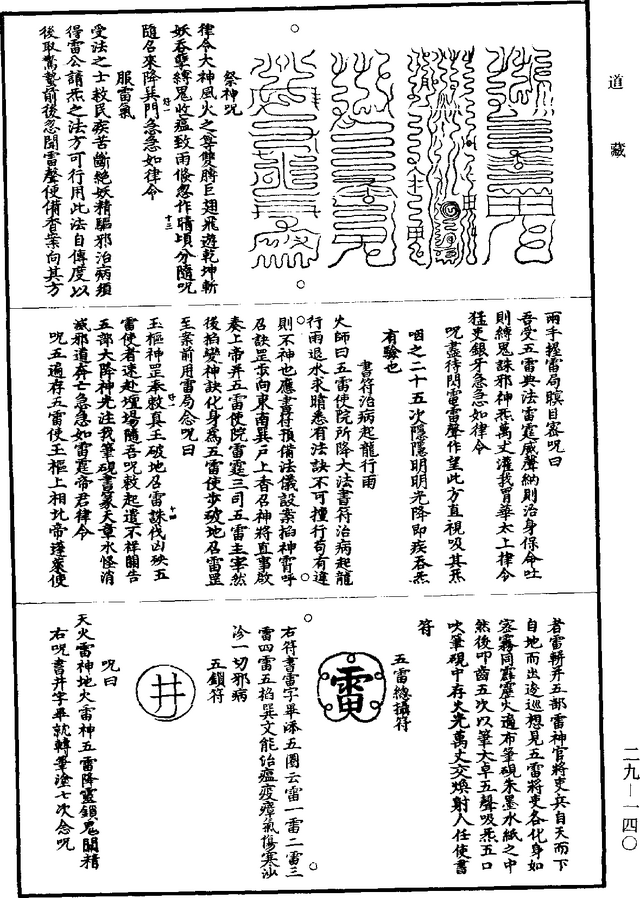 道藏
祭神咒
律令大神風火之尊雙䏶巨翅飛遊乾坤斬
妖吞孽縛鬼收瘟致雨倏忽作晴頃分隨呪
隨召來降巽門急急如律令
服雷氣
受法之士救民疾苦斷絕妖精驅邪治病須
得雷公請炁之法方可行用此法自傳度以
後取驚蟄前後忽聞雷聲便備香案向其方
兩手握雷局瞑目密呪曰
吾受五雷典法雷霆威聲納則治身保命吐
則縛鬼誅邪神炁萬丈灌我胃華太上律令
猛吏銀牙急急如律令
呪盡待閃電雷聲作望此方直視吸其炁
咽之二十五次隱隱明明光降即疾吞炁
有驗也
書符治病起龍行雨
火師曰五雷使院所降大法書符治病起龍
行雨退水求晴悉有法訣不可擅行苟有違
則不神也應書符預備法儀設案掐神霄呼
召訣罡步向東南巽戶上香召神將直事啟
奏上帝并五雷使院雷霆三司五雷主宰然
後掐變神訣化身為五雷使步破地召雷罡
至案前用雷局念呪曰
玉樞神罡奉敕真王破地召雷誅伐凶殃五
雷使者速赴壇場隨吾呪敕起遣不祥關告
五部大降神光注我筆硯書篆天章水怪消
滅邪道奔亡急急如雷霆帝君律令
呪五遍存五雷使玉樞上相北帝蓬萊使
者雷軿并五部雷神官將吏兵自天而下
自地而出邊巡想見五雷將吏各化身如
密霧同霹靂火遍布筆硯朱墨水紙之中
然後叩齒五次以筆大卓五聲吸炁五口
吹筆硯中存火光萬丈交煥射人任使書
符
五雷總攝符
雷
右符書雷字畢添五圈云雷一雷二雷三
雷四雷五掐巽文能治瘟疫瘴氣傷寒沙
沴一切邪病
五鎖符
井
呪曰
天火雷神地火雷神五雷降靈鎖鬼關精
右呪書井字畢就轉筆塗七次念呪
二九—一四〇